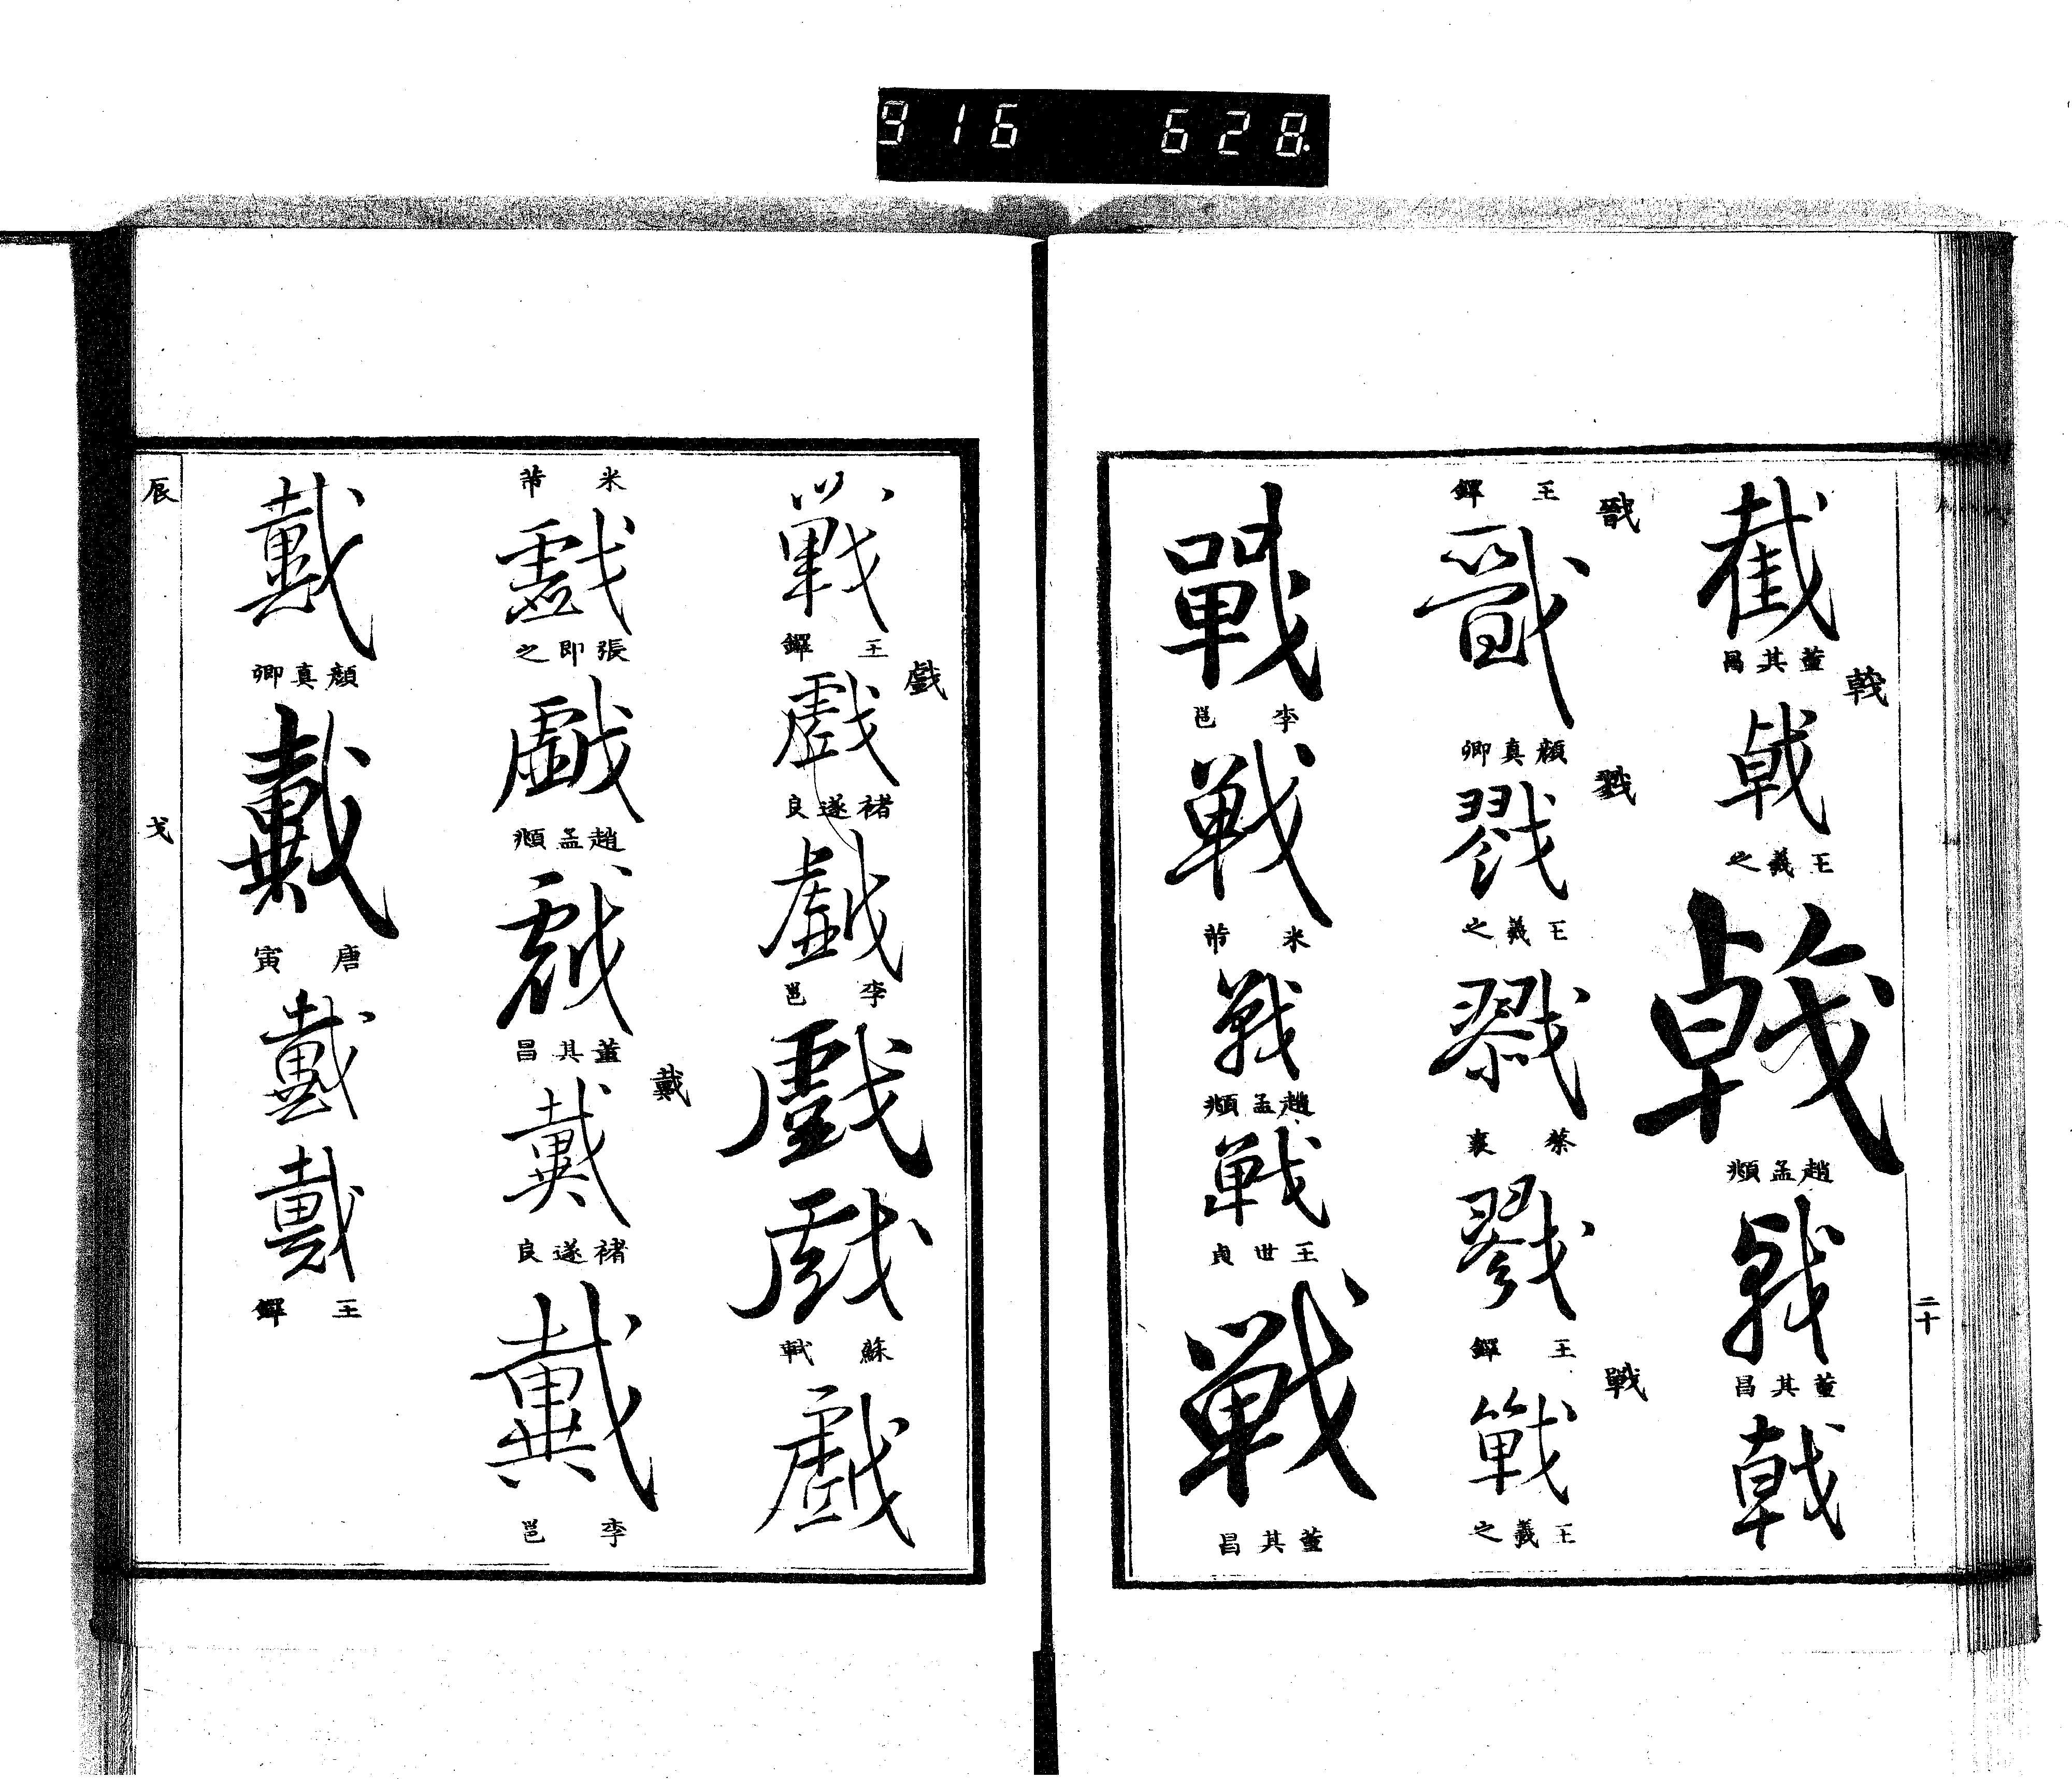 916 628.
二十
截
董其昌
戟
戟
王羲之
戟
趙孟頫
戟
董其昌
戟
王鐸
戩
戩
顏真卿
戮
戮
王羲之
戮
蔡襄
戮
王鐸
戰
戰
王羲之
戰
李邕
戰
米芾
戰
趙孟頫
戰
王世貞
戰
董其昌
戰
王鐸
戲
戲
褚遂良
戲
李邕
戲
戲
蘇軾
戲
米芾
戲
張即之
戲
趙孟頫
戲
董其昌
戴
戴
褚遂良
戴
李邕
戴
顏真卿
戴
唐寅
戴
戴
王鐸
辰
戈